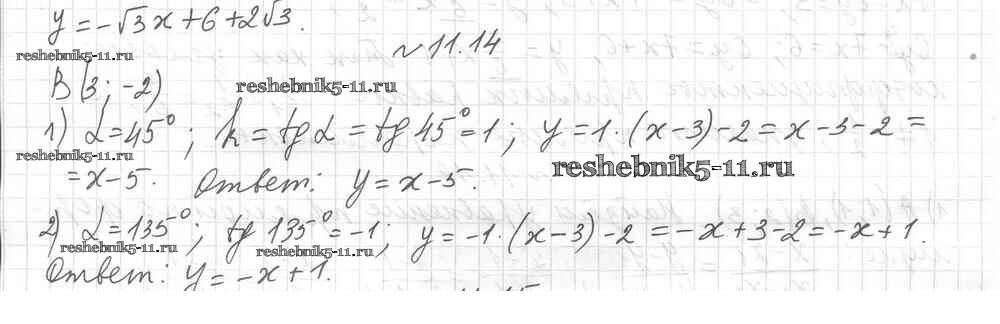 y = -√3 x + 6 + 2√3.
reshebnik5-11.ru
№ 11.14
B (3; -2)
reshebnik5-11.ru
1) α = 45°; k = tg α = tg 45° = 1; y = 1·(x - 3) - 2 = x - 3 - 2 =
reshebnik5-11.ru
reshebnik5-11.ru
= x - 5. Ответ: y = x - 5.
2) α = 135°; tg 135° = -1; y = -1·(x - 3) - 2 = -x + 3 - 2 = -x + 1.
reshebnik5-11.ru
reshebnik5-11.ru
Ответ: y = -x + 1.